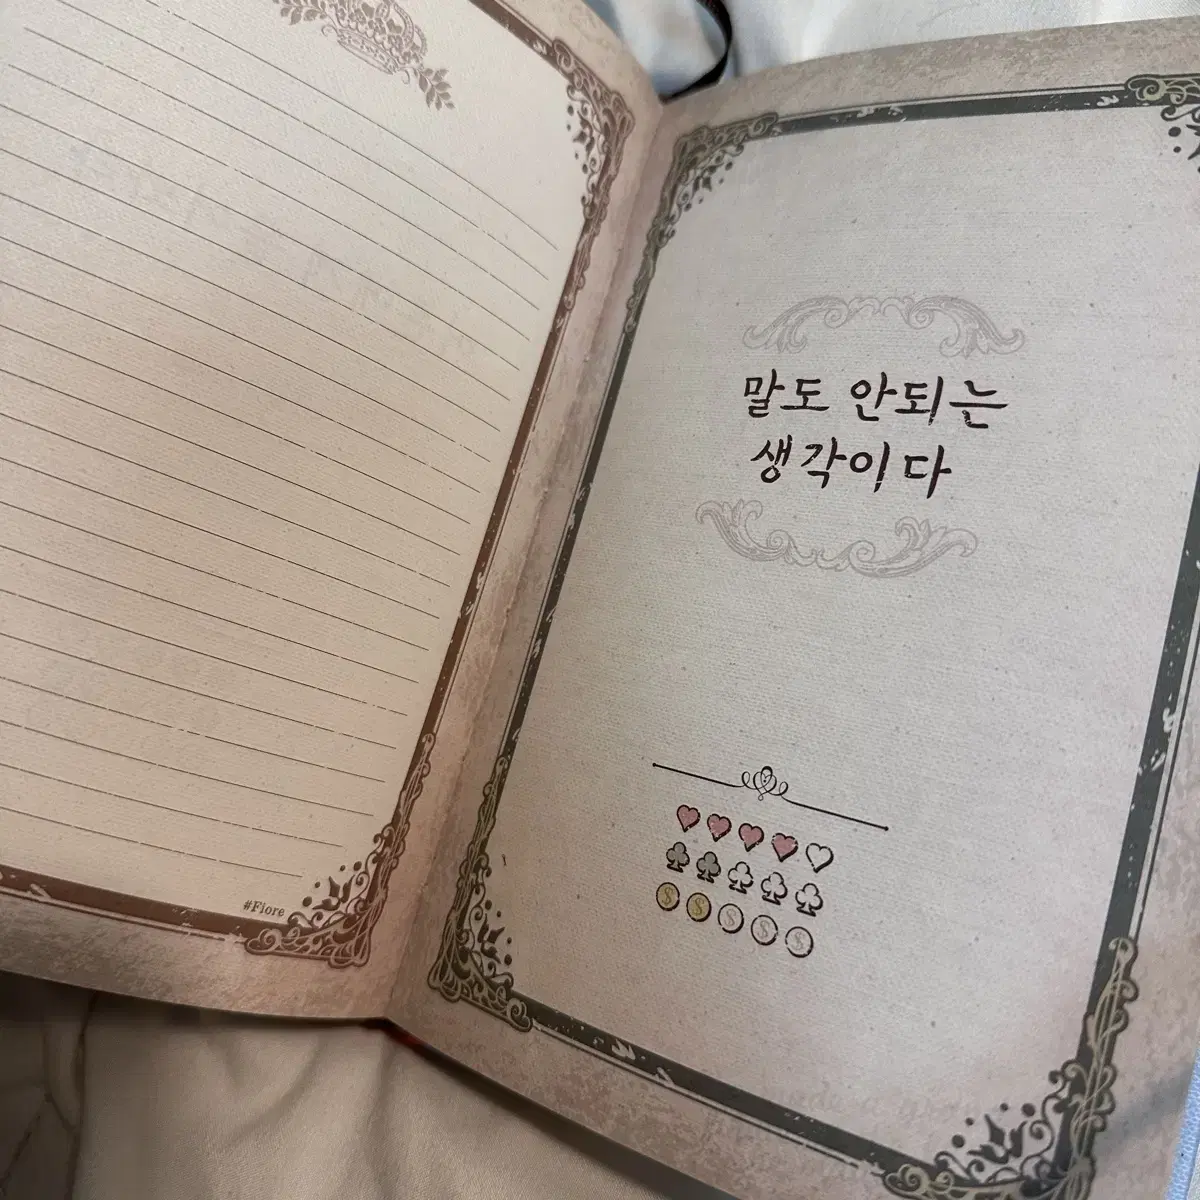 #Fiore
말도 안되는
생각이다